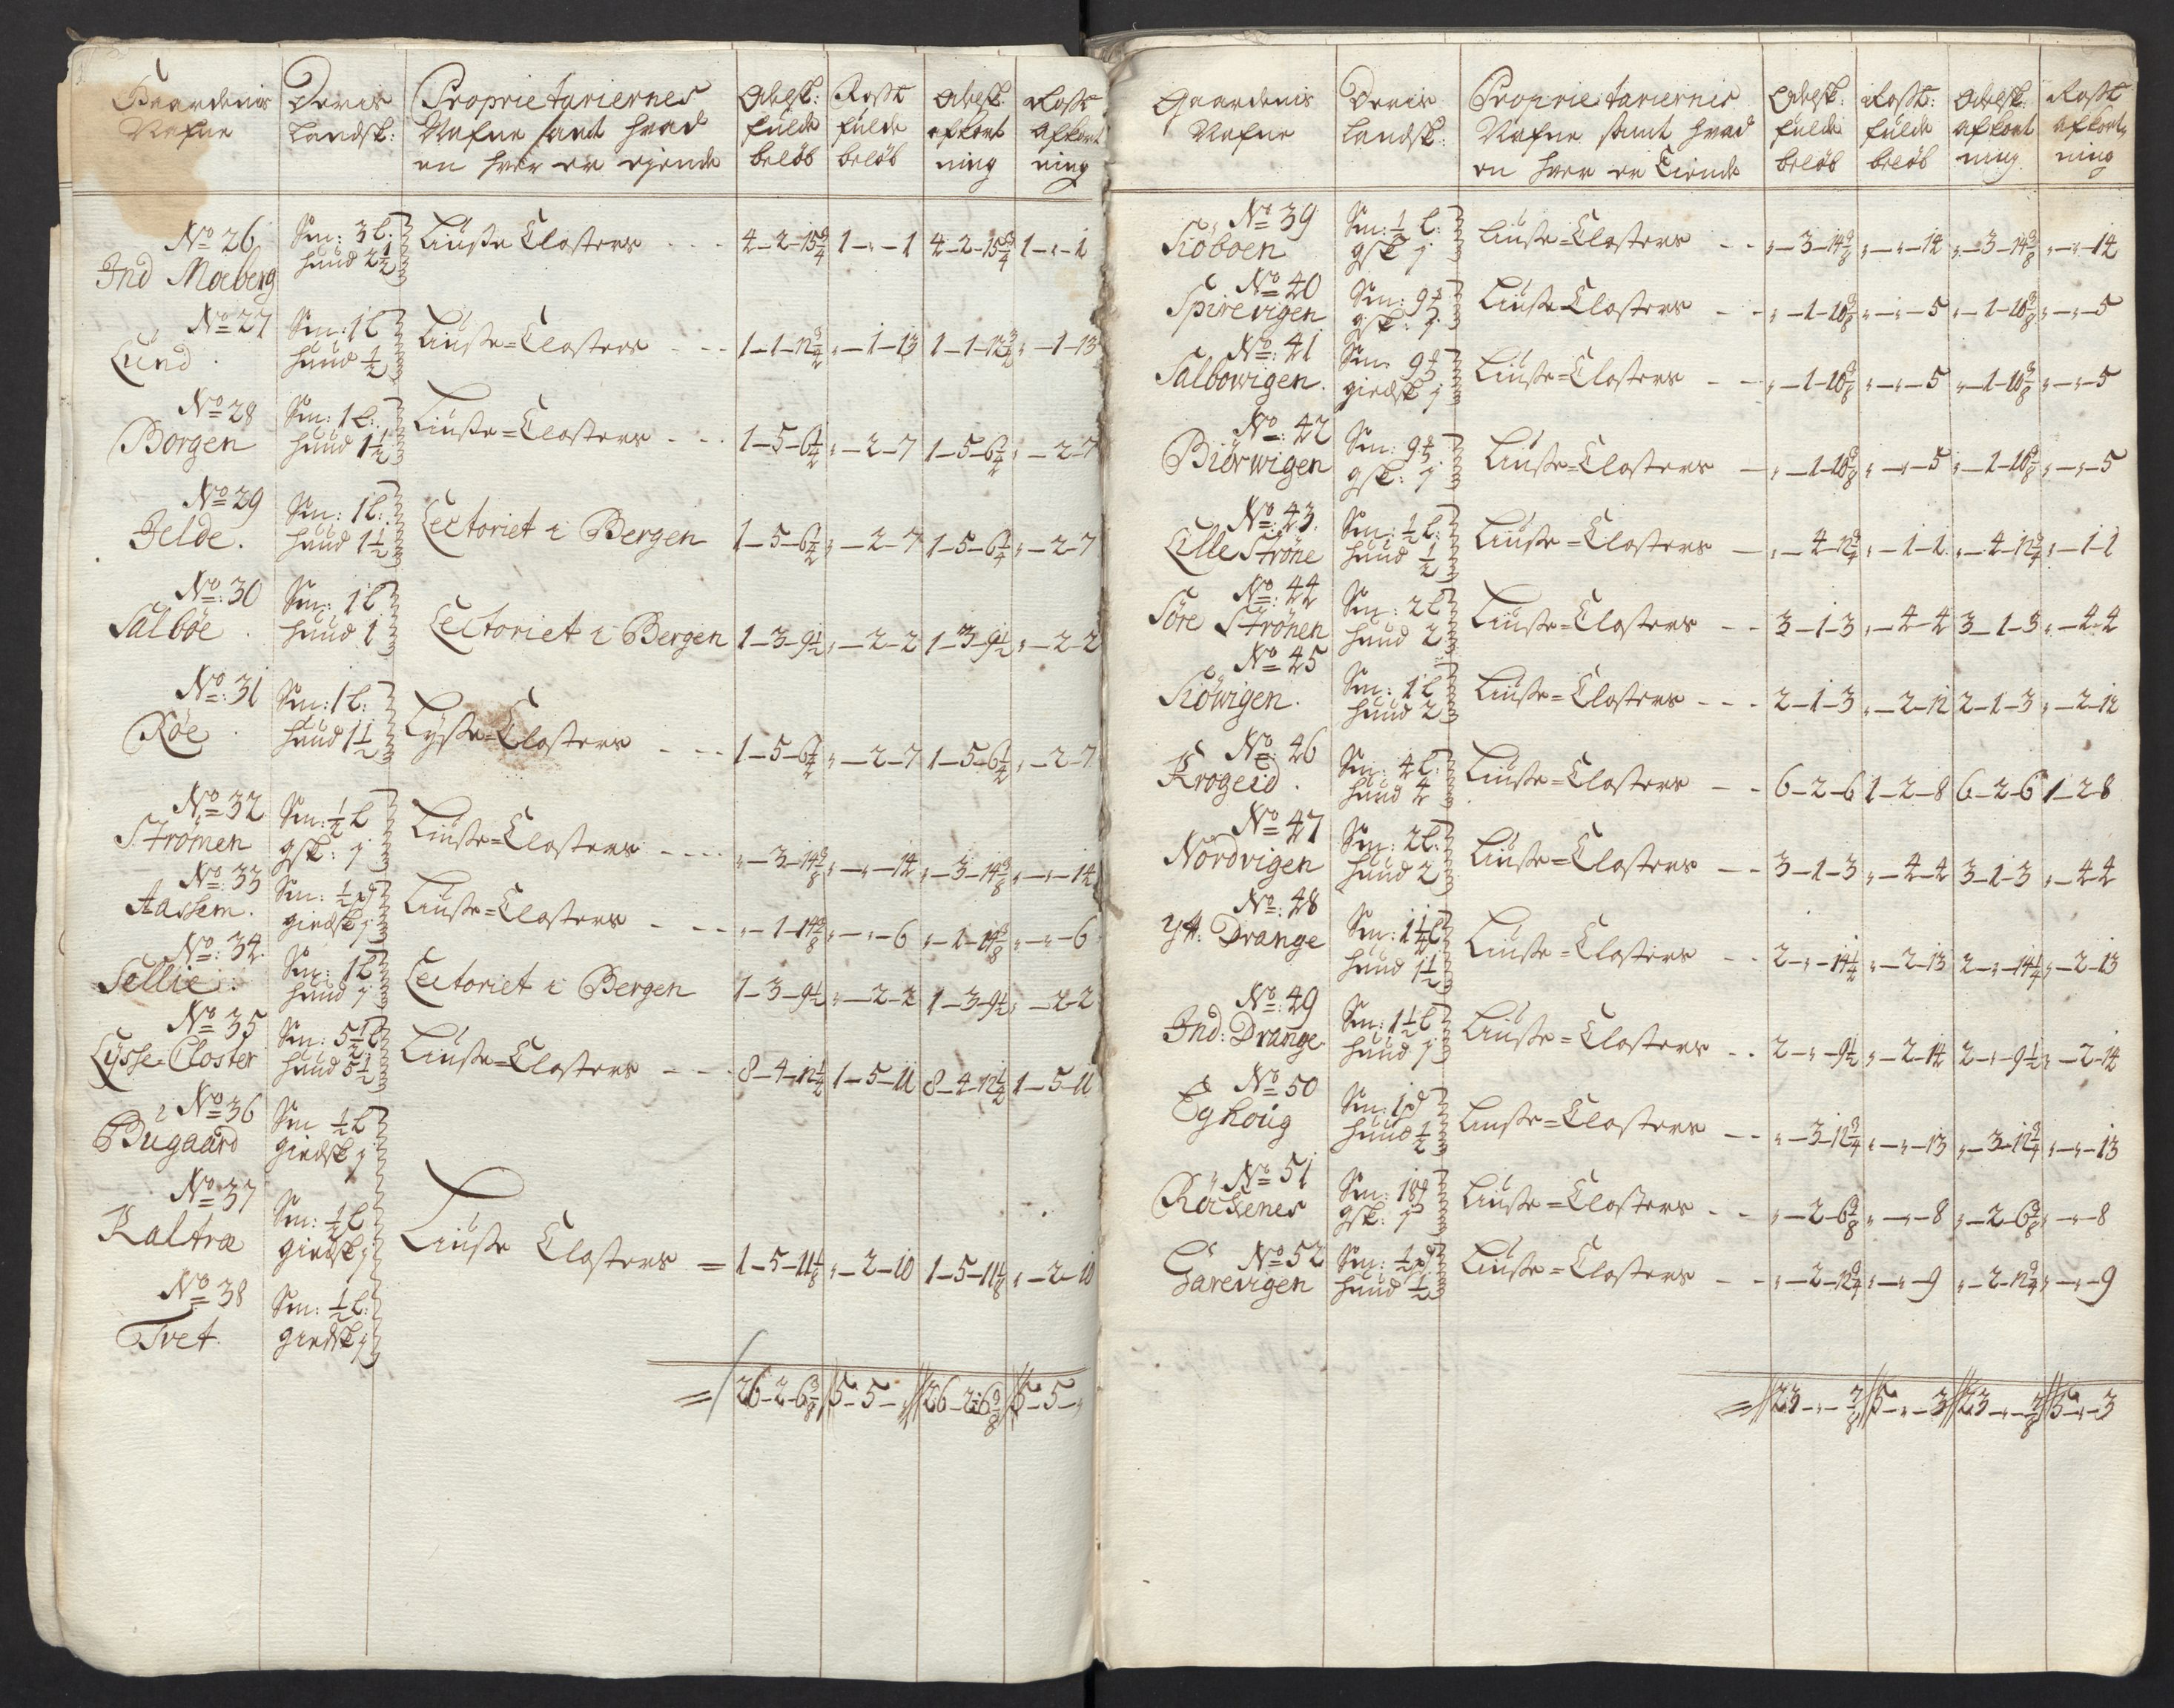 Gaardenis Nafne | Deris Landsk: | Proprietariernes Nafne samt hvad en hver er ejende | Odelsk: fulde beløb | Rosst: fulde beløb | Odelsk afkortning | Rosst afkortning
No 26 Ind Moberg | Sm: 3 l: huud 2 1/2 | Liusse Closters | 4-2-15 3/4 | 1-"-1 | 4-2-15 3/4 | 1-"-1
No 27 Lund. | Sm: 1 l huud 1/2 | Liusse=Closters | 1-1-12 3/4 | "-1-13 | 1-1-12 3/4 | "-1-13
No 28 Borgen | Sm: 1 l: huud 1 1/2 | Liusse=Closters | 1-5-6 1/4 | "-2-7 | 1-5-6 1/4 | "-2-7
No 29 Jelde. | Sm: 1 l: huud 1 1/2 | Lectoriet i Bergen | 1-5-6 1/4 | "-2-7 | 1-5-6 1/4 | "-2-7
No: 30 Salbøe. | Sm: 1 l huud 1 | Lectoriet i Bergen | 1-3-9 1/2 | "-2-2 | 1-3-9 1/2 | "-2-2
No: 31 Røe. | Sm: 1 l: huud 1 1/2 | Lysse=Closters | 1-5-6 1/4 | "-2-7 | 1-5-6 1/4 | "-2-7
No 32 Strømen | Sm: 1/2 l gsk: j | Liusse=Closters | "-3-14 3/8 | "-"-14 | "-3-14 3/8 | "-"-14
No: 33 Aassem. | Sm: 1/2 pd giedsk j | Liusse=Closters | "-1-14 3/8 | "-"-6 | "-1-14 3/8 | "-"-6
No: 34. Sellie. | Sm: 1 l huud j | Lectoriet i Bergen | 1-3-9 1/2 | "-2-2 | 1-3-9 1/2 | "-2-2
No 35 Lysse=Closter | Sm: 5 1/2 l huud 5 1/2 | Liusse=Closters | 8-4-12 1/4 | 1-5-11 | 8-4-12 1/4 | 1-5-11
No 36 Bugaard | Sm 1/2 l giedsk j
No 37 Kaltræ | Sm: 1/2 l giedsk j | Liusse Closters = | 1-5-11 1/8 | "-2-10 | 1-5-11 1/8 | "-2-10
No 38 Tvet. | Sm: 1/2 l: giedsk j
= 26-2-6 3/8 | 5-5-" | 26-2-6 3/8 | 5-5-"
Gaardenis Nafne | Deris Landsk: | Proprietariernis Nafne samt hvad en hver er Eiende | Odelsk: fulde beløb | Rosst: fulde beløb | Odelsk: afkortning | Rosst afkortning
No 39 Siøboen | Sm: 1/2 l: gsk j | Liusse=Closters | "-3-14 3/8 | "-"-14 | "-3-14 3/8 | "-"-14
No 40 Spirevigen | Sm: 9 gsk: j | Liusse Closters | "-1-10 3/8 | "-"-5 | "-1-10 3/8 | "-"-5
No: 41 Salbowigen. | Sm: 9 giedsk j | Liusse=Closters | "-1-10 3/8 | "-"-5 | "-1-10 3/8 | "-"-5
No: 42 Biørwigen | Sm: 9 gsk: j | Liusse=Closters | "-1-10 3/8 | "-"-5 | "-1-10 3/8 | "-"-5
No: 43. Lille Strøne | Sm: 1/2 l: huud 1/2 | Liusse=Closters | "-4-12 3/4 | "-1-1 | "-4-12 3/4 | "-1-1
No: 44 Søre Strønen | Sm: 2 l huud 2 | Liusse=Closters | 3-1-3 | "-4-4 | 3-1-3 | "-4-4
No: 45 Siøwigen. | Sm: 1 l huud 2 | Liusse=Closters | 2-1-3 | "-2-12 | 2-1-3 | "-2-12
No: 46 Krogeid. | Sm: 4 l: huud 4 | Liusse=Closters | 6-2-6 | 1-2-8 | 6-2-6 | 1-2-8
No 47 Nordvigen | Sm: 2 l: huud 2 | Liusse=Closters | 3-1-3 | "-4-4 | 3-1-3 | "-4-4
No: 48 Yt: Drange | Sm: 1 1/4 l huud 1 1/2 | Liusse=Closters | 2-"-14 1/4 | "-2-13 | 2-"-14 1/4 | "-2-13
No: 49 Ind: Drange. | Sm: 1 1/2 l huud j | Liusse=Closters | 2-"-9 1/2 | "-2-14 | 2-"-9 1/2 | "-2-14
No 50 Eghoug | Sm: 1 pd huud 1/2 | Liusse=Closters | "-3-12 3/4 | "-"-13 | "-3-12 3/4 | "-"-13
No 51 Røckenes | Sm: 18 gsk: j | Liusse=Closters | "-2-6 3/8 | "-"-8 | "-2-6 3/8 | "-"-8
No 52 Garevigen | Sm: 1/2 pd huud 1/2 | Liusse=Closters | "-2-12 3/4 | "-"-9 | "-2-12 3/4 | "-"-9
= 23-"-7/8 | 5-"-3 | 23-"-7/8 | 5-"-3